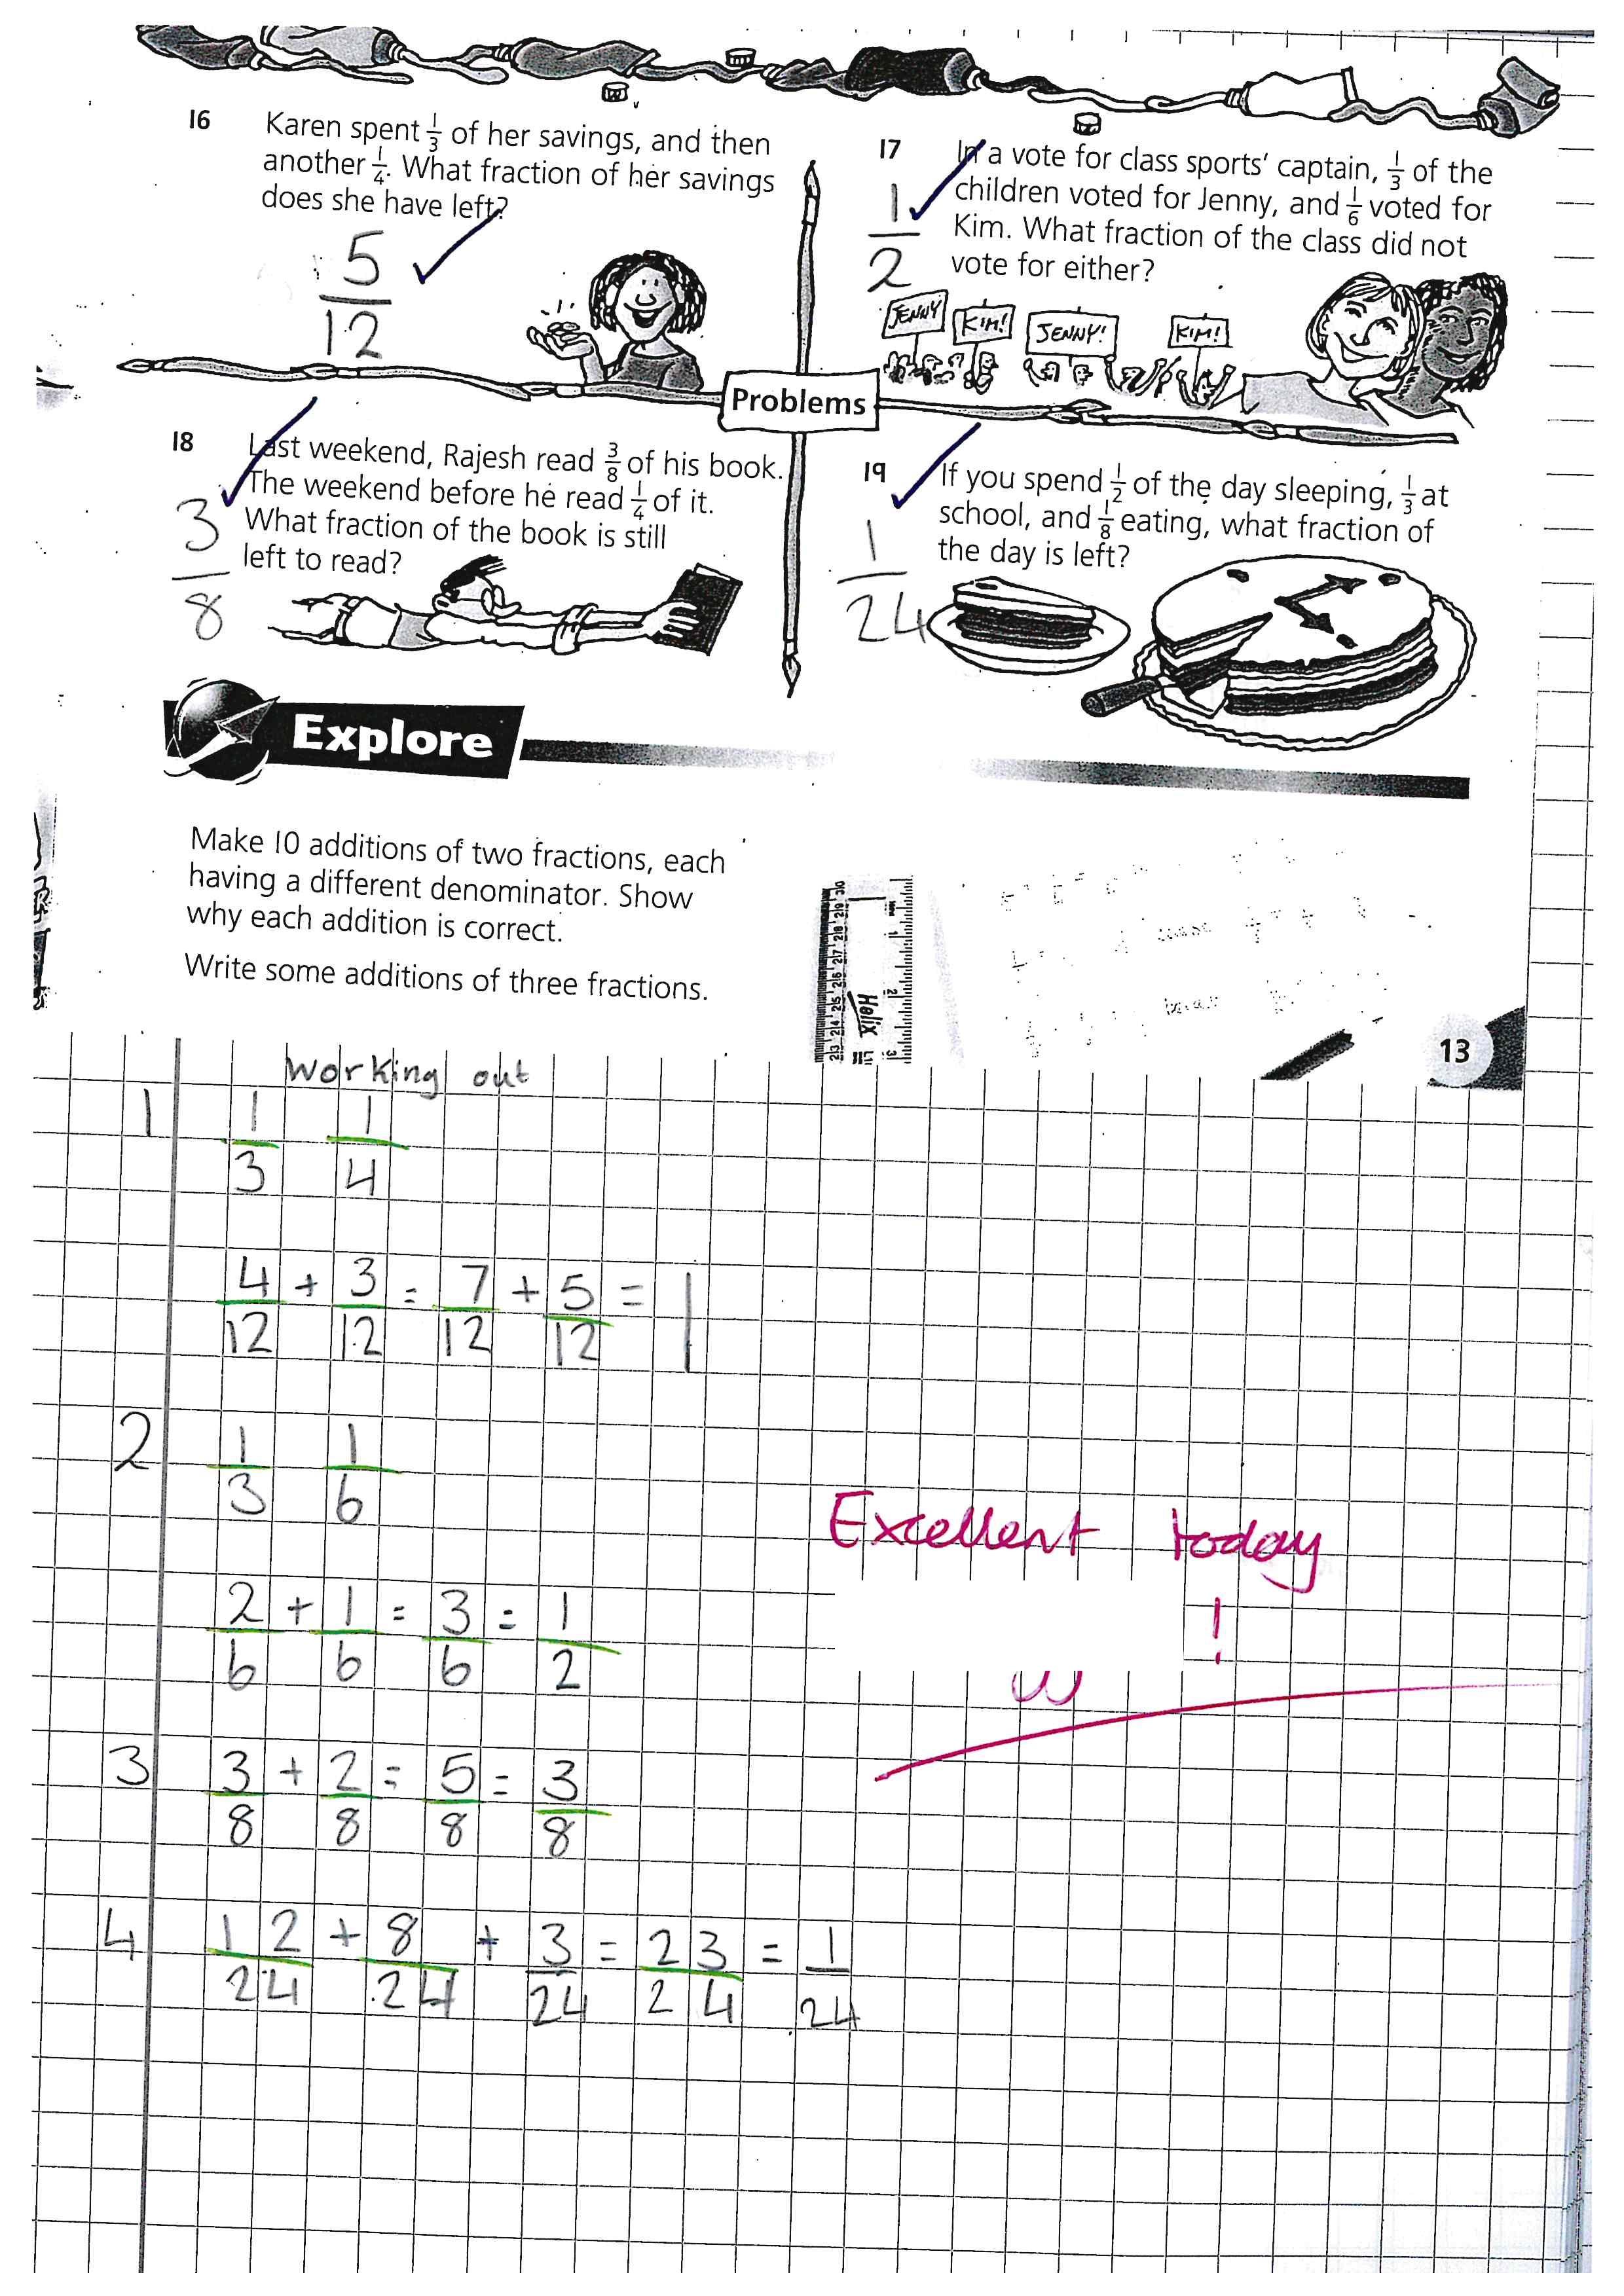 16 Karen spent 1/3 of her savings, and then
another 1/4. What fraction of her savings
does she have left?
5/12
17 In a vote for class sports' captain, 1/3 of the
children voted for Jenny, and 1/6 voted for
Kim. What fraction of the class did not
vote for either?
1/2
JENNY KIM! JENNY! KIM!
Problems
18 Last weekend, Rajesh read 3/8 of his book.
The weekend before he read 1/4 of it.
What fraction of the book is still
left to read?
3/8
19 If you spend 1/2 of the day sleeping, 1/3 at
school, and 1/8 eating, what fraction of
the day is left?
1/24
Explore
Make 10 additions of two fractions, each
having a different denominator. Show
why each addition is correct.
Write some additions of three fractions.
Helix
13
Working out
1 1/3 1/4
4/12 + 3/12 = 7/12 + 5/12 = 1
2 1/3 1/6
2/6 + 1/6 = 3/6 = 1/2
Excellent today
!
3 3/8 + 2/8 = 5/8 = 3/8
4 12/24 + 8/24 + 3/24 = 23/24 = 1/24